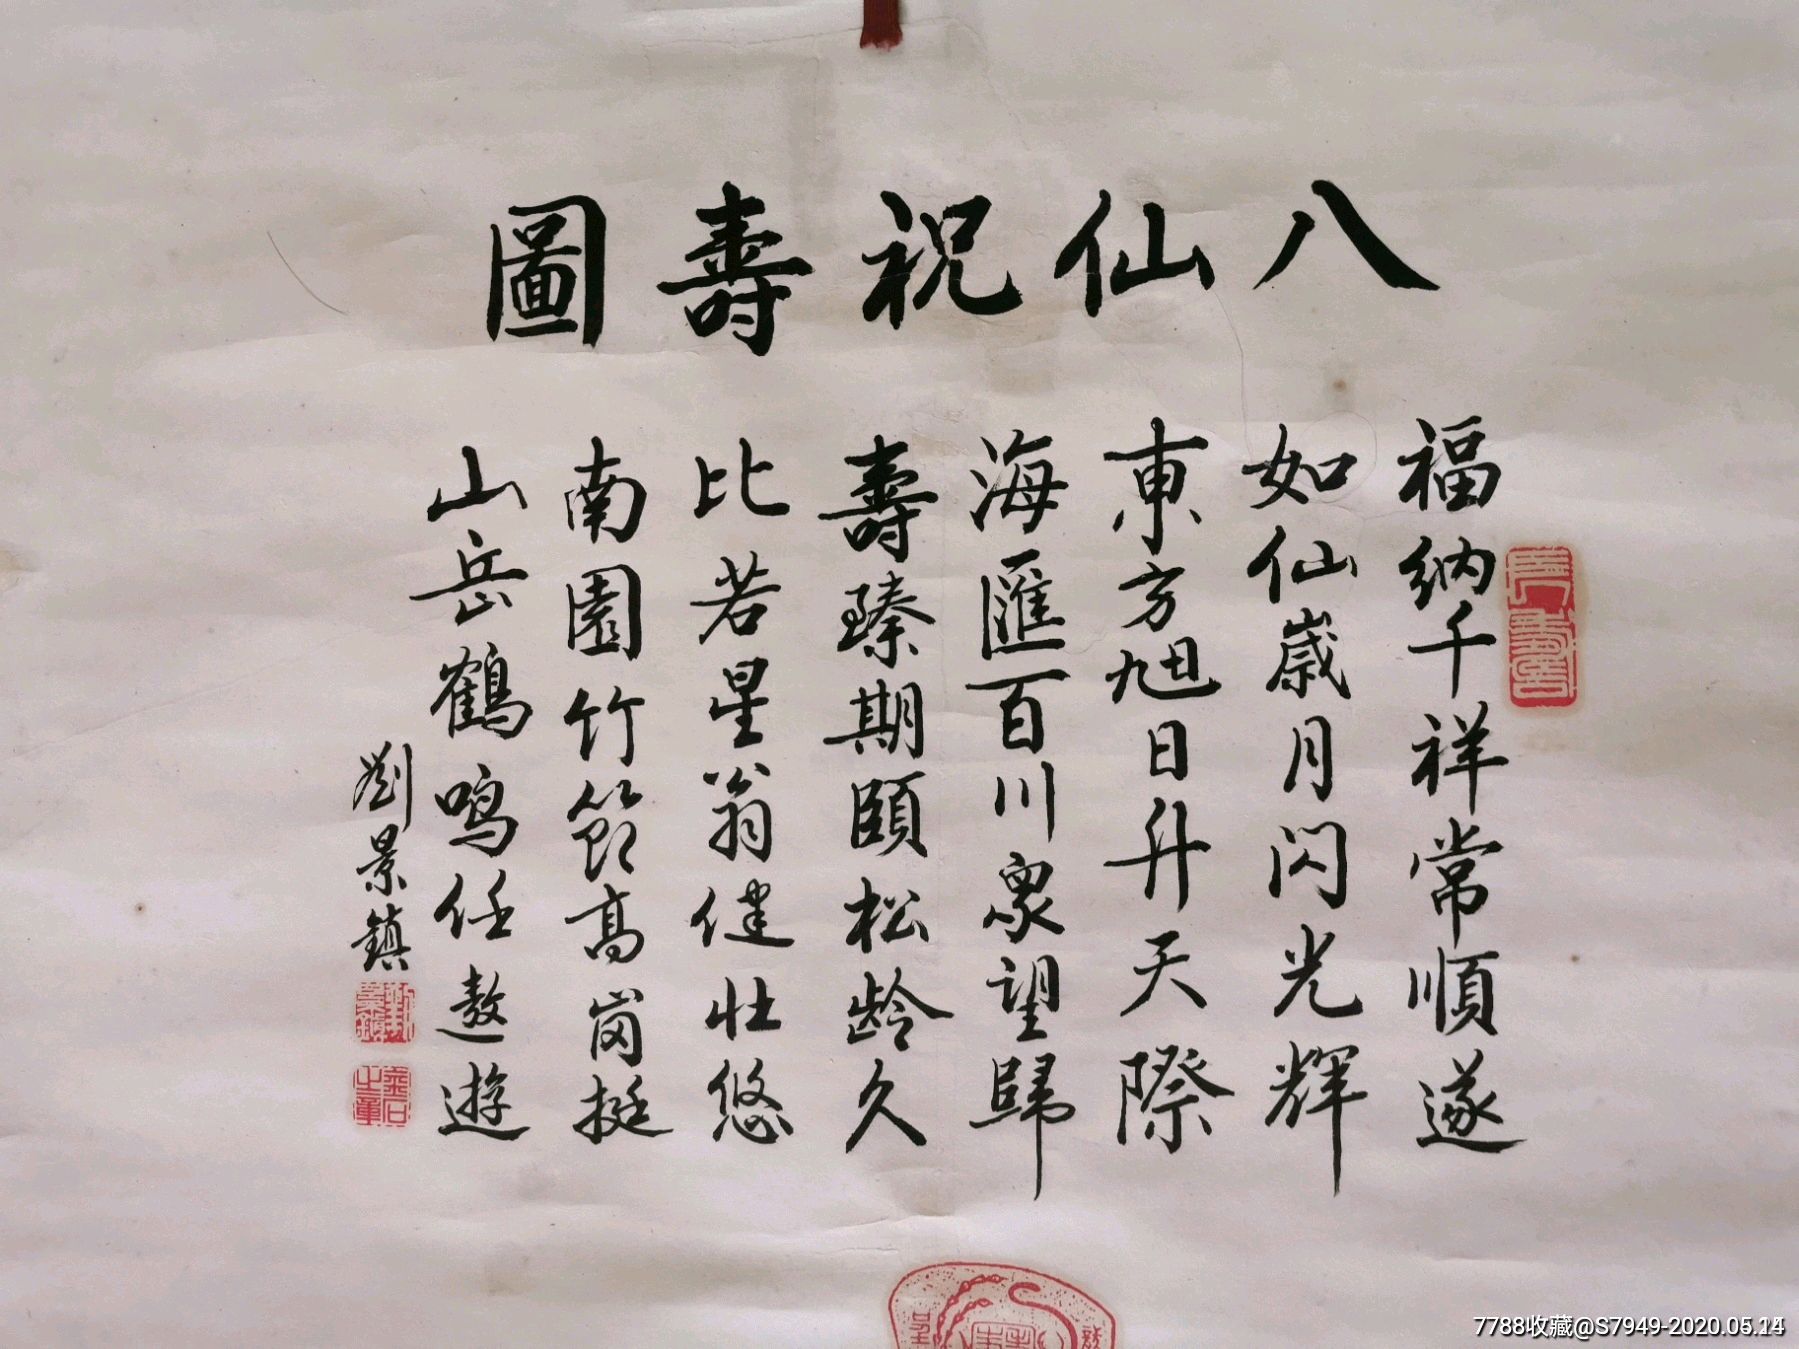 八仙祝壽圖
福納千祥常順遂
如仙嵗月閃光輝
東方旭日升天際
海匯百川衆望歸
壽臻期頤松龄久
比若星翁健壯悠
南園竹節高崗挺
山岳鶴鸣任遨遊
劉景鎮
7788收藏@S7949-2020.05.14